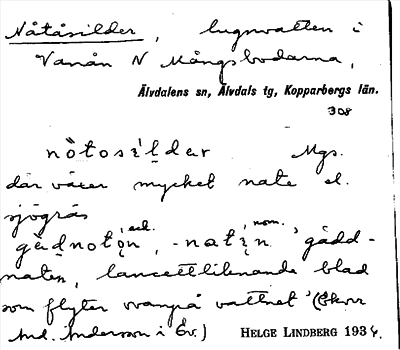 Nåtåsilder, lugnvatten i
Vanån N Mångsbodarna,
Älvdalens sn, Älvdals tg, Kopparbergs län.
308
nòtosìldɛr Mgs.
där växer mycket nate el.
sjögräs
ack. nom.
gädnoto̜n, -natı̜n, 'gädd-
naten, lancettliknande blad
som flyter ovanpå vattnet' (Ekorr
And. Andersson i Ev.) HELGE LINDBERG 1934.